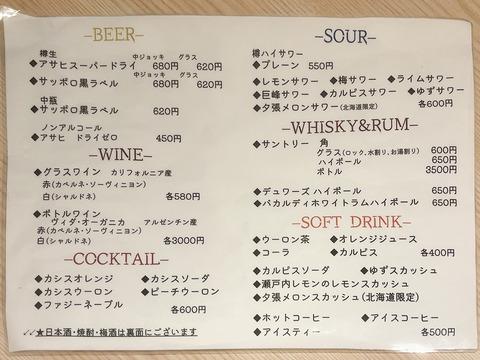 –BEER–
樽生
中ジョッキ グラス
◆アサヒスーパードライ 680円 620円
中ジョッキ グラス
◆サッポロ黒ラベル 680円 620円
中瓶
◆サッポロ黒ラベル 620円
ノンアルコール
◆アサヒ ドライゼロ 450円
–WINE–
◆グラスワイン カリフォルニア産
赤(カベルネ・ソーヴィニヨン)
白(シャルドネ) 各580円
◆ボトルワイン
ヴィダ・オーガニカ アルゼンチン産
赤(カベルネ・ソーヴィニヨン)
白(シャルドネ) 各3000円
–COCKTAIL–
◆カシスオレンジ ◆カシスソーダ
◆カシスウーロン ◆ピーチウーロン
◆ファジーネーブル 各600円
↙↙★日本酒・焼酎・梅酒は裏面にございます
–SOUR–
樽ハイサワー
◆プレーン 550円
◆レモンサワー ◆梅サワー ◆ライムサワー
◆巨峰サワー ◆カルピスサワー ◆ゆずサワー
◆夕張メロンサワー(北海道限定) 各600円
–WHISKY&RUM–
◆サントリー 角
グラス(ロック、水割り、お湯割り) 600円
ハイボール 650円
ボトル 3500円
◆デュワーズ ハイボール 650円
◆バカルディホワイトラムハイボール 650円
–SOFT DRINK–
◆ウーロン茶 ◆オレンジジュース
◆コーラ ◆カルピス 各400円
◆カルピスソーダ ◆ゆずスカッシュ
◆瀬戸内レモンのレモンスカッシュ
◆夕張メロンスカッシュ(北海道限定)
◆ホットコーヒー ◆アイスコーヒー
◆アイスティー 各500円